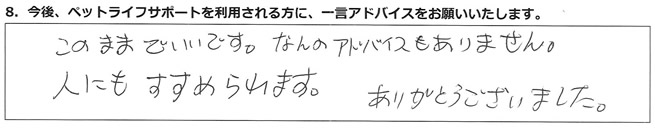 8. 今後、ペットライフサポートを利用される方に、一言アドバイスをお願いいたします。
このままでいいです。なんのアドバイスもありません。
人にもすすめられます。 ありがとうございました。